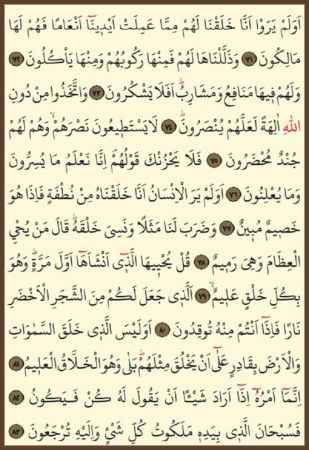 اَوَلَمْ يَرَوْا اَنَّا خَلَقْنَا لَهُمْ مِمَّا عَمِلَتْ اَيْد۪ينَٓا اَنْعَامًا فَهُمْ لَهَا
مَالِكُونَ ﴿٧١﴾ وَذَلَّلْنَاهَا لَهُمْ فَمِنْهَا رَكُوبُهُمْ وَمِنْهَا يَأْكُلُونَ ﴿٧٢﴾
وَلَهُمْ ف۪يهَا مَنَافِعُ وَمَشَارِبُۜ اَفَلَا يَشْكُرُونَ ﴿٧٣﴾ وَاتَّخَذُوا مِنْ دُونِ
اللّٰهِ اٰلِهَةً لَعَلَّهُمْ يُنْصَرُونَۜ ﴿٧٤﴾ لَا يَسْتَط۪يعُونَ نَصْرَهُمْۙ وَهُمْ لَهُمْ
جُنْدٌ مُحْضَرُونَ ﴿٧٥﴾ فَلَا يَحْزُنْكَ قَوْلُهُمْۢ اِنَّا نَعْلَمُ مَا يُسِرُّونَ
وَمَا يُعْلِنُونَ ﴿٧٦﴾ اَوَلَمْ يَرَ الْاِنْسَانُ اَنَّا خَلَقْنَاهُ مِنْ نُطْفَةٍ فَاِذَا هُوَ
خَص۪يمٌ مُب۪ينٌ ﴿٧٧﴾ وَضَرَبَ لَنَا مَثَلًا وَنَسِيَ خَلْقَهُۜ قَالَ مَنْ يُحْيِ
الْعِظَامَ وَهِيَ رَم۪يمٌ ﴿٧٨﴾ قُلْ يُحْي۪يهَا الَّذ۪ٓي اَنْشَاَهَٓا اَوَّلَ مَرَّةٍۜ وَهُوَ
بِكُلِّ خَلْقٍ عَل۪يمٌۙ ﴿٧٩﴾ اَلَّذ۪ي جَعَلَ لَكُمْ مِنَ الشَّجَرِ الْاَخْضَرِ
نَارًا فَاِذَٓا اَنْتُمْ مِنْهُ تُوقِدُونَ ﴿٨٠﴾ اَوَلَيْسَ الَّذ۪ي خَلَقَ السَّمٰوَاتِ
وَالْاَرْضَ بِقَادِرٍ عَلٰٓى اَنْ يَخْلُقَ مِثْلَهُمْۜ بَلٰى وَهُوَ الْخَلَّاقُ الْعَل۪يمُ ﴿٨١﴾
اِنَّمَٓا اَمْرُهُٓ اِذَٓا اَرَادَ شَيْـًٔا اَنْ يَقُولَ لَهُ كُنْ فَيَكُونُ ﴿٨٢﴾
فَسُبْحَانَ الَّذ۪ي بِيَدِه۪ مَلَكُوتُ كُلِّ شَيْءٍ وَاِلَيْهِ تُرْجَعُونَ ﴿٨٣﴾